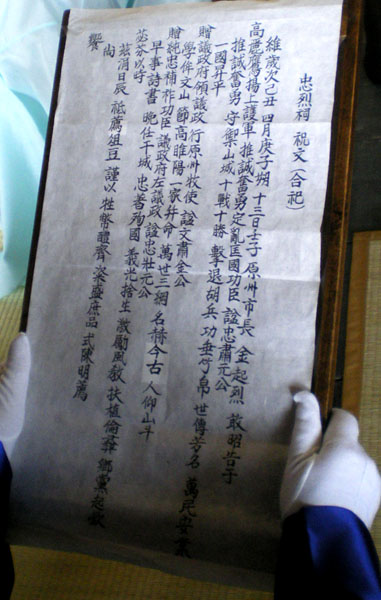 忠烈祠 祝文 (合祀)
維歲次己丑 四月庚子朔 十三日壬子 原州市長 金起烈 敢昭告于
高麗鷹揚上護軍 推誠奮勇定亂匡國功臣 諡忠肅元公
推誠奮勇 守禦山城 十戰十勝 擊退胡兵 功垂竹帛 世傳芳名 萬民安業
一國昇平
贈議政府領議政行原州牧使 諡文肅金公
學侔文山 節高睢陽 一家幷命 萬世三綱 名赫今古 人仰山斗
贈純忠補祚功臣 議政府左議政 諡忠壯元公
早事詩書 晩仕干城 忠著殉國 義光捨生 激勵風敎 扶植倫彛 鄕黨起欽
苾芬以時
玆涓日辰 祗薦俎豆 謹以 牲幣醴齊 粢盛庶品 式陳明薦
尙
饗